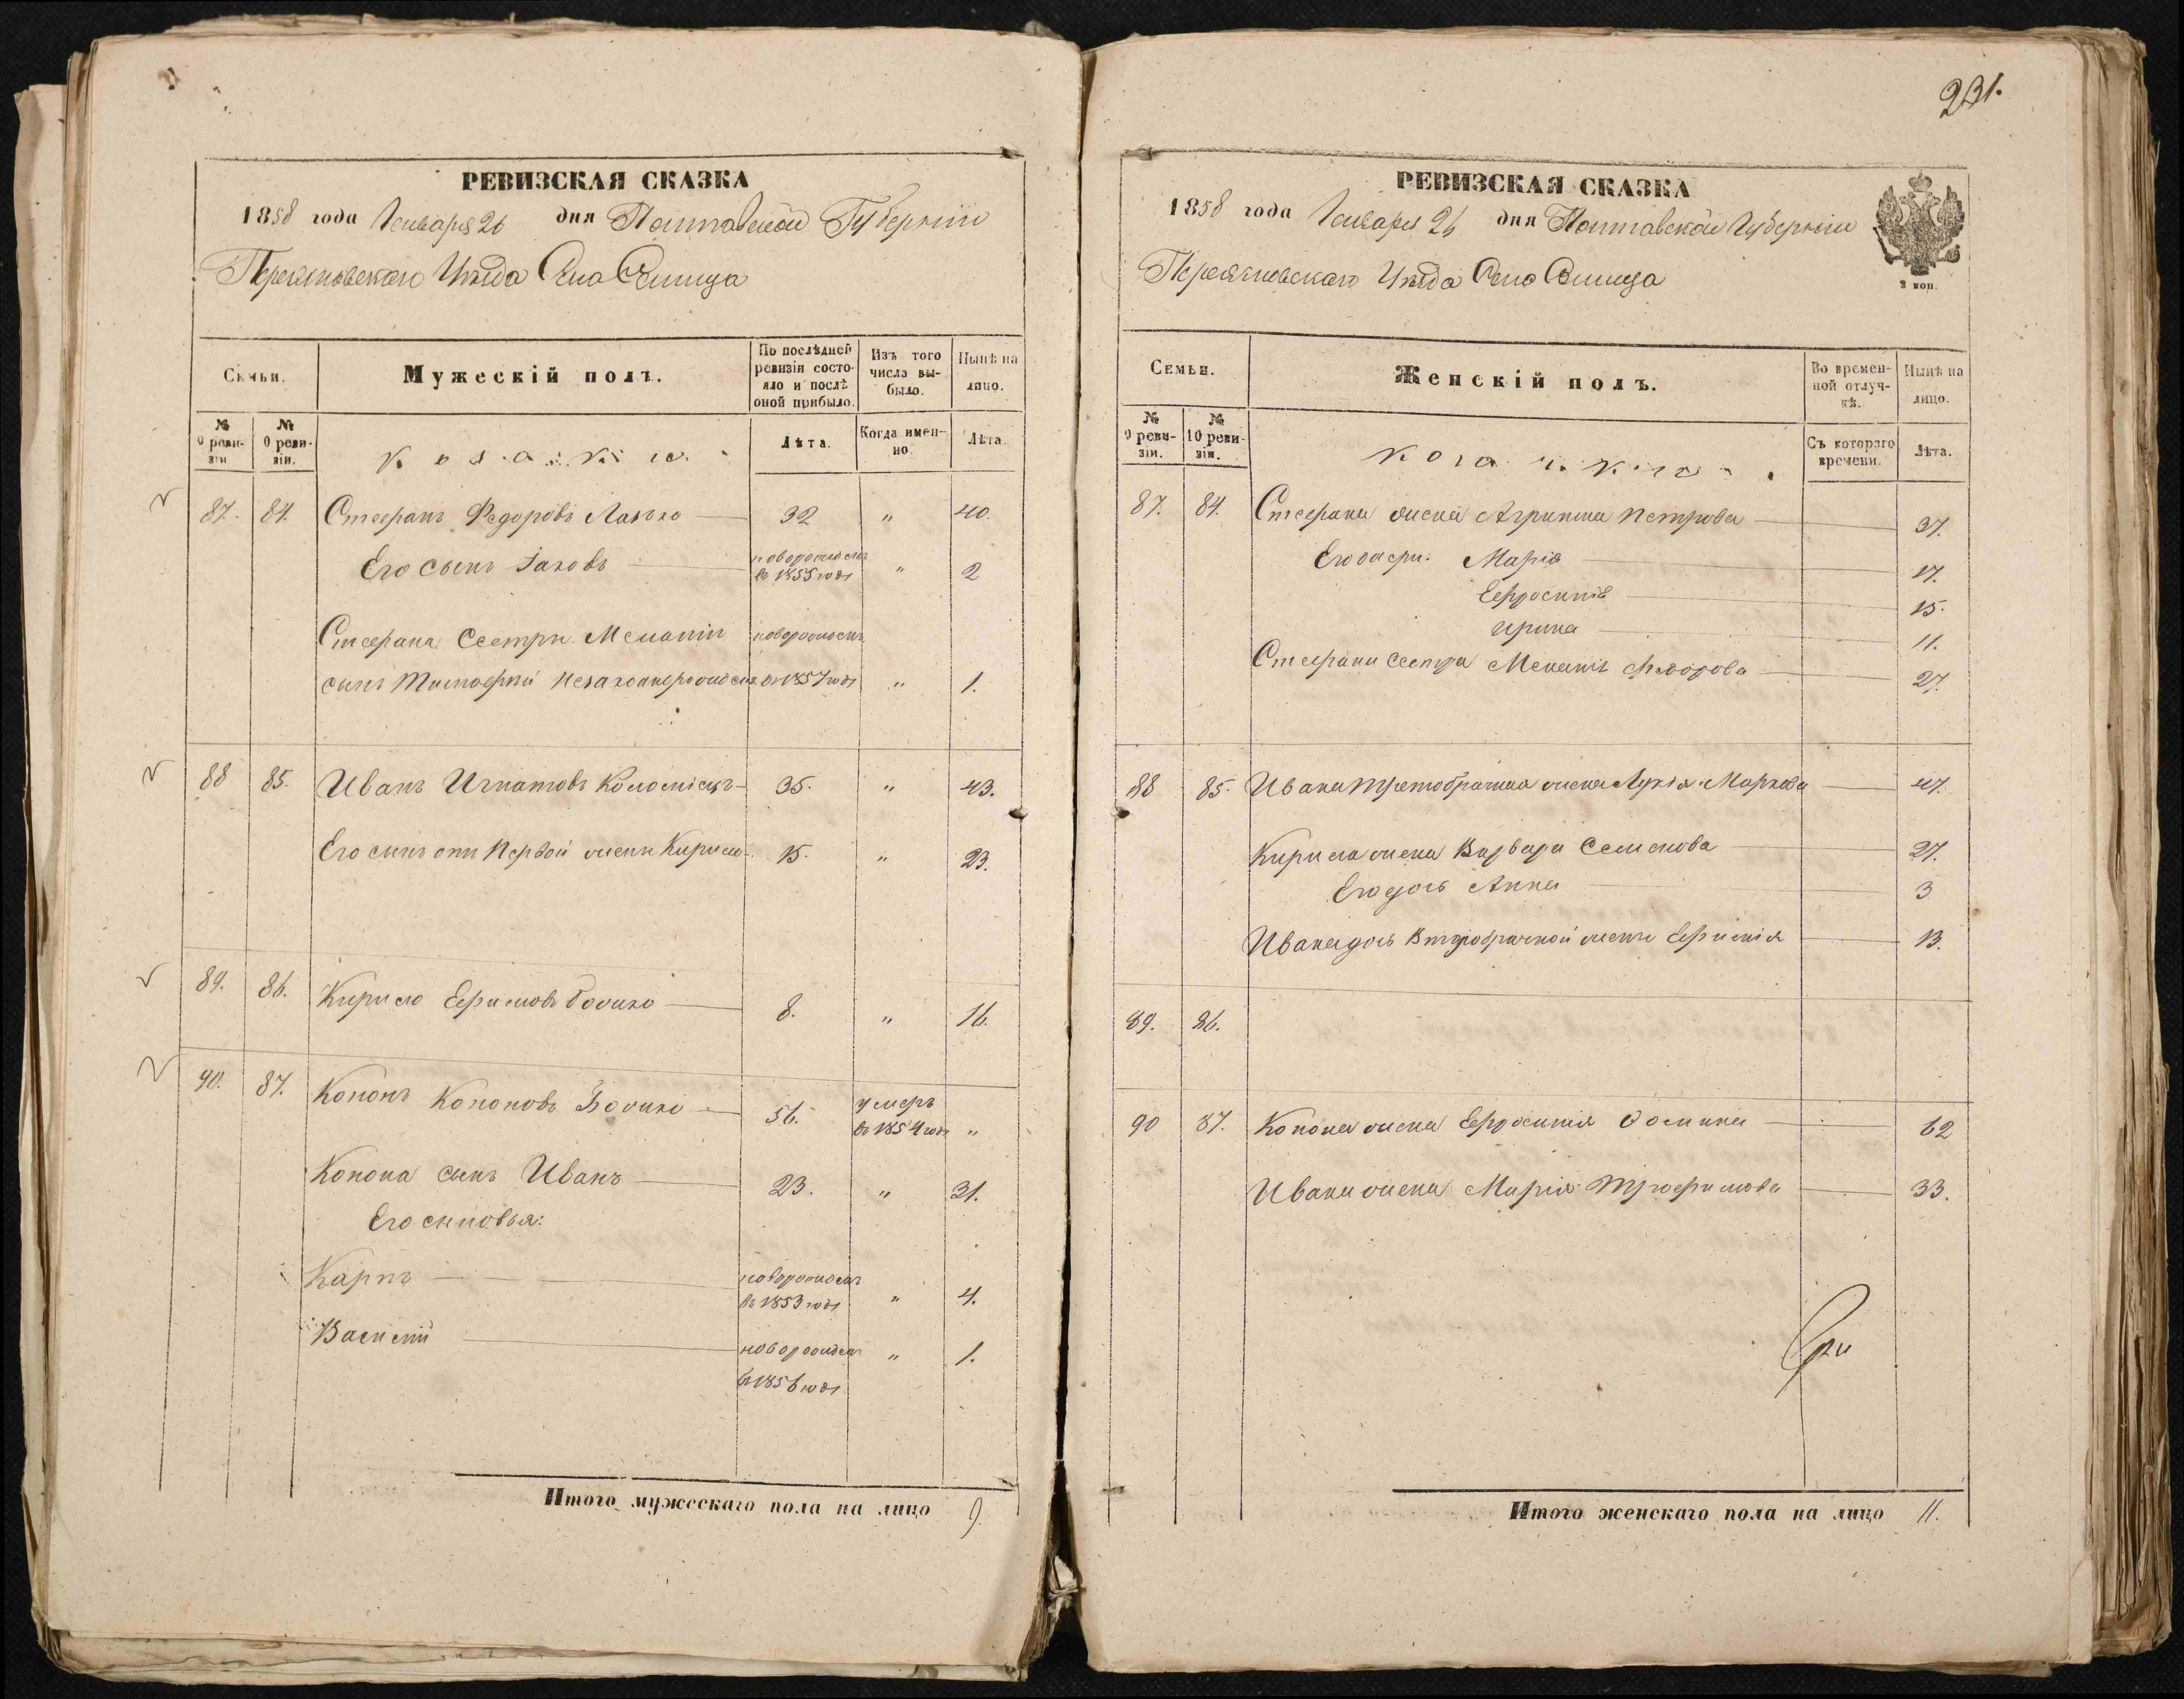 231.
РЕВИЗСКАЯ СКАЗКА
1858 года Января 26 дня Полтавской Губерніи
Переяславскаго Уезда Село
Семьи.
Мужескій полъ.
По послѣдней ревизіи состояло и послѣ оной прибыло.
Изъ того числа выбыло.
Нынѣ на лицо.
№ 9 ревизіи
№ 10 ревизіи.
Лѣта.
Когда именно.
Лѣта.
87. 84. Стефанъ Федоровъ 32 " 40.
Его сынъ Іаковъ новорожденъ въ 1855 году " 2
Стефана Сестры Меланіи новорожденъ
сынъ Тимофей незаконнорожденъ въ 1857 году " 1.
88 85. Иванъ Игнатовъ Коломіецъ 35. " 43.
Его сынъ отъ первой жены Кирило 15. " 23.
89. 86. Кирило Ефимовъ Божко 8. " 16.
90. 87. Кононъ Кононовъ Божко 56. умеръ въ 1854 году "
Конона сынъ Иванъ 23. " 31.
Его сыновья:
Карпъ новорожденъ въ 1853 году " 4.
Василій новорожденъ въ 1856 году " 1.
Итого мужескаго пола на лицо 9.
РЕВИЗСКАЯ СКАЗКА
1858 года Января 26 дня Полтавской Губерніи
Переяславскаго Уезда Село
Семьи.
Женскій полъ.
Во временной отлучкѣ.
Нынѣ на лицо.
№ 9 ревизіи.
№ 10 ревизіи.
Съ котораго времени.
Лѣта.
87. 84. Стефана жена Агрипина Петрова 37.
Его дочери: Марія 17.
Евфросинія 15.
Ирина 11.
Стефана сестра Меланія Федорова 27.
88 85. Ивана третобрачная жена Лукія Маркова 47.
Кирила жена Варвара Семенова 27.
Его дочь Анна 3
Ивана дочь второбрачной жены Ефимія 13.
89. 86.
90 87. Конона жена Евфросинія Фомина 62
Ивана жена Марія Трофимова 33.
Итого женскаго пола на лицо 11.